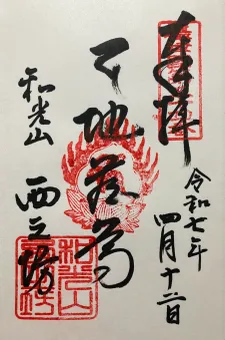 奉拝
令和七年
四月十二日
地蔵尊
和光山
西之坊